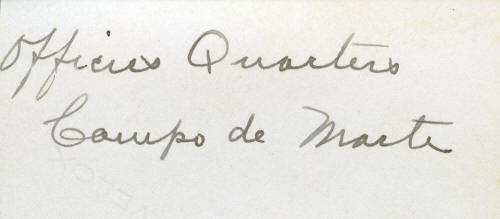 Officers Quarters
Campo de Marte